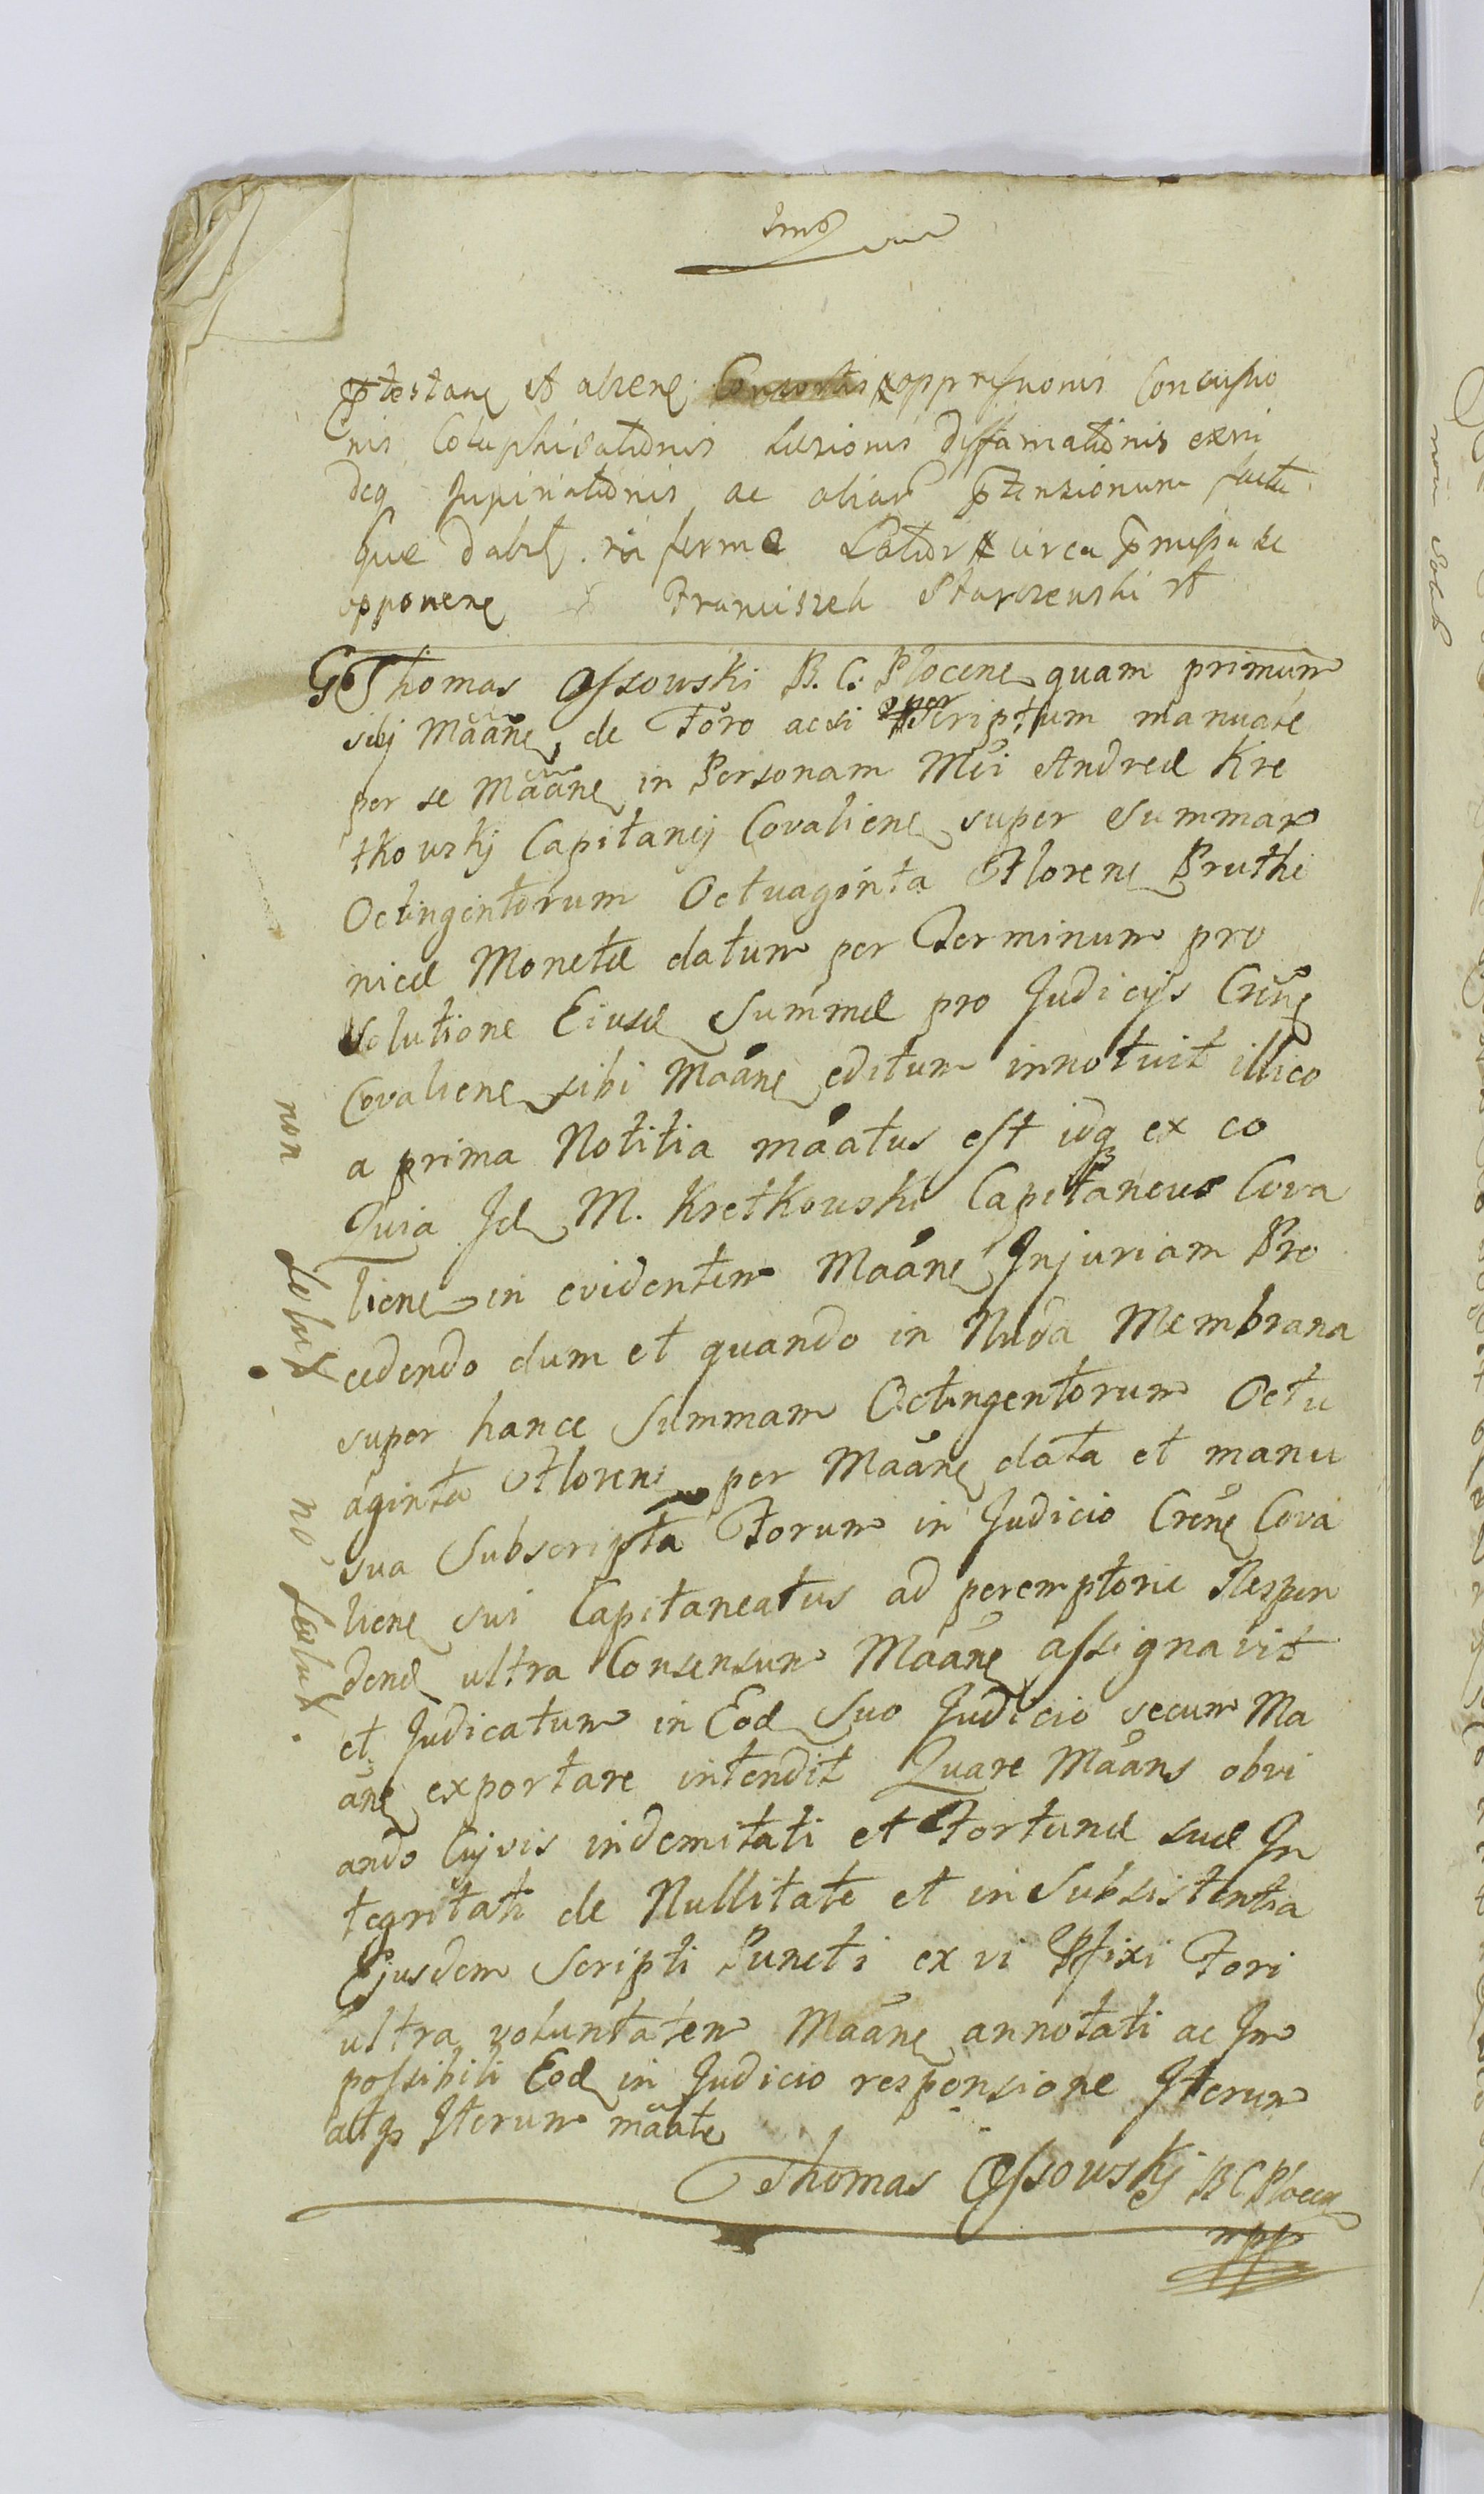 Imo
Ptestane et altene Consortis oppressionis Concussio
nis Colaphisationis Lesionis Diffamationis exni
deq ac aliar Ptensionum factu
Que dabit. Lator circa Pmissa se
opponene Franciszek Starczewski rt
G Thomas Ossowski B. C. Plocene quam primum
sibj Maane de Foro acsi super Scriptum manuate
per se Maane in Personam Mci Andreæ Kre
tkowskj Capitanej Covaliene super Summam
Octingentorum Octuaginta Florene Pruthe
nicæ Monetæ datum per Terminum pro
Solutione Eiusd Summæ pro Judicijs Crene
Covaliene sibi Maane editum innotuit illico
a prima Notitia maatus est idq ex eo
Quia Id M. Kretkowski Capitaneus Cova
liene in evidentem Maane Injuriam Pro
cedendo dum et quando in Nuda Membrana
super hance Summam Octingentorum Octu
aginta Florene per Maane data et manu
sua Subscripta Forum in Judicio Crene Cova
liene sui Capitaneatus ad peremptorie Respon
dene ultra Consensum Maane assignavit
et Judicatum in Eod Suo Judicio secum Ma
ane exportare intendit Quare Maans obvi
ando Cujvis indemitati et Fortunæ suæ In
tegritati de Nullitate et in Subsistentia
Ejusdem Scripti Puncti ex vi Pfixi Fori
ultra voluntatem Maane annotati ac Im
possibili Eod in Judicio responsione Iterum
atq Iterum maate
Thomas Ossowskj B C Plocen
mpp
non solut
no solut.
non solut